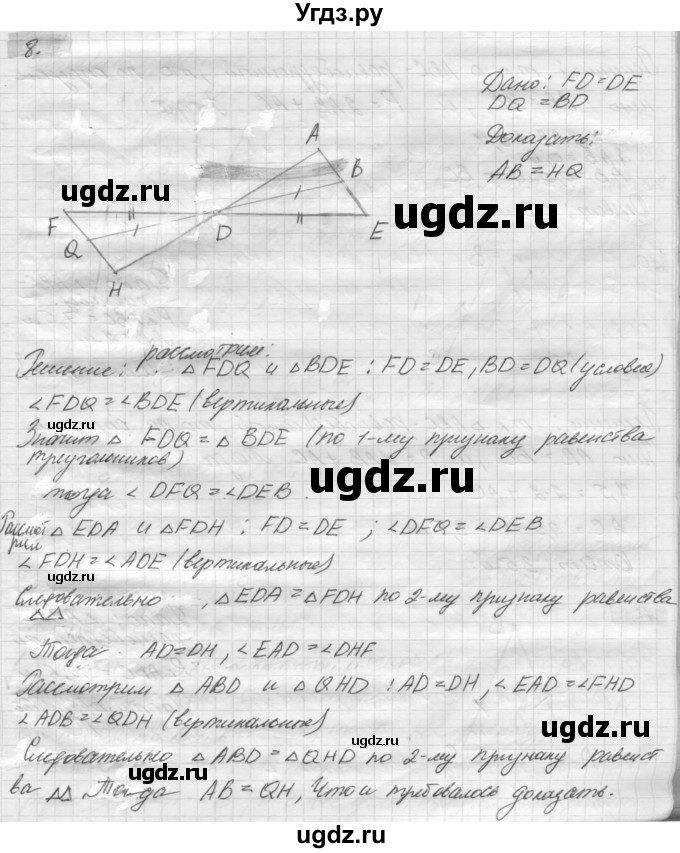 Угдз.ру
8.
Дано: FD = DE
DQ = BD
Доказать:
AB = HQ
A
B
ugdz.ru
ugdz.ru
F
Q
D
E
H
Решение: рассмотрим: △ FDQ и △ BDE : FD = DE, BD = DQ (условие)
∠FDQ = ∠BDE (вертикальные)
ugdz.ru
Значит △ FDQ = △ BDE (по 1-му признаку равенства
треугольников)
тогда ∠ DFQ = ∠DEB.
ugdz.ru
Рассмотрим △ EDA и △ FDH : FD = DE ; ∠DFQ = ∠DEB
∠FDH = ∠ADE (вертикальные)
ugdz.ru
Следовательно, △ EDA = △ FDH по 2-му признаку равенства
△△
Тогда AD = DH, ∠EAD = ∠DHF
Рассмотрим △ ABD и △ QHD : AD = DH, ∠ EAD = ∠FHD
∠ADB = ∠QDH (вертикальные)
ugdz.ru
ugdz.ru
Следовательно △ ABD = △QHD по 2-му признаку равенст
ва △△ Тогда AB = QH, Что и требовалось доказать.
ugdz.ru
ugdz.ru
ugdz.ru